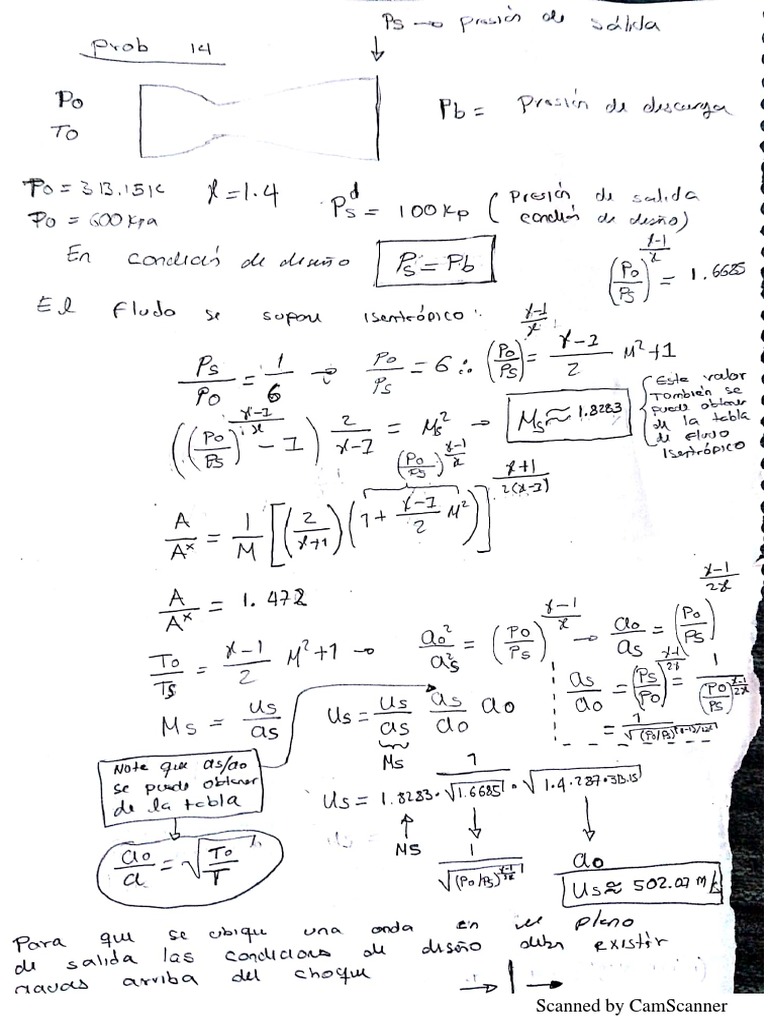 Ps → presión de sálida
Prob 14
Po
To
Pb = Presión de descarga
To = 313.15 K γ = 1.4 Ps^d = 100 Kp (Presión de salida
Po = 600 Kpa condión de diseño)
En condición de diseño Ps = Pb
(Po/Ps)^((γ-1)/γ) = 1.6685
El fludo se supone isentrópico:
Ps/Po = 1/6 → Po/Ps = 6 ∴ (Po/Ps)^((γ-1)/γ) = (γ-1)/2 M²+1
((Po/Ps)^((γ-1)/γ) - 1) 2/(γ-1) = Ms² → Ms ≈ 1.8283
Este valor
También se
puede obtener
de la tabla
de flujo
Isentrópico
(Po/Ps)^((γ-1)/γ)
A/A* = 1/M [(2/(γ+1)) (1 + (γ-1)/2 M²)]^((γ+1)/(2(γ-1)))
A/A* = 1.472
To/Ts = (γ-1)/2 M²+1 → ao²/as² = (Po/Ps)^((γ-1)/γ) → ao/as = (Po/Ps)^((γ-1)/2γ)
as/ao = (Ps/Po)^((γ-1)/2γ) = 1/(Po/Ps)^((γ-1)/2γ)
Ms = us/as Us = us/as as/ao ao
Ms
Note que as/ao
se puede obtener
de la tabla
ao/a = √(To/T)
Us = 1.8283 · 1/√1.6685 · √(1.4·287·313.15)
Ms
1/√((Po/Ps)^((γ-1)/2γ))
ao
Us ≈ 502.07 m/s
Para que se ubique una onda en el plano
de salida las condiciones de diseño deben existir
aguas arriba del choque
Scanned by CamScanner